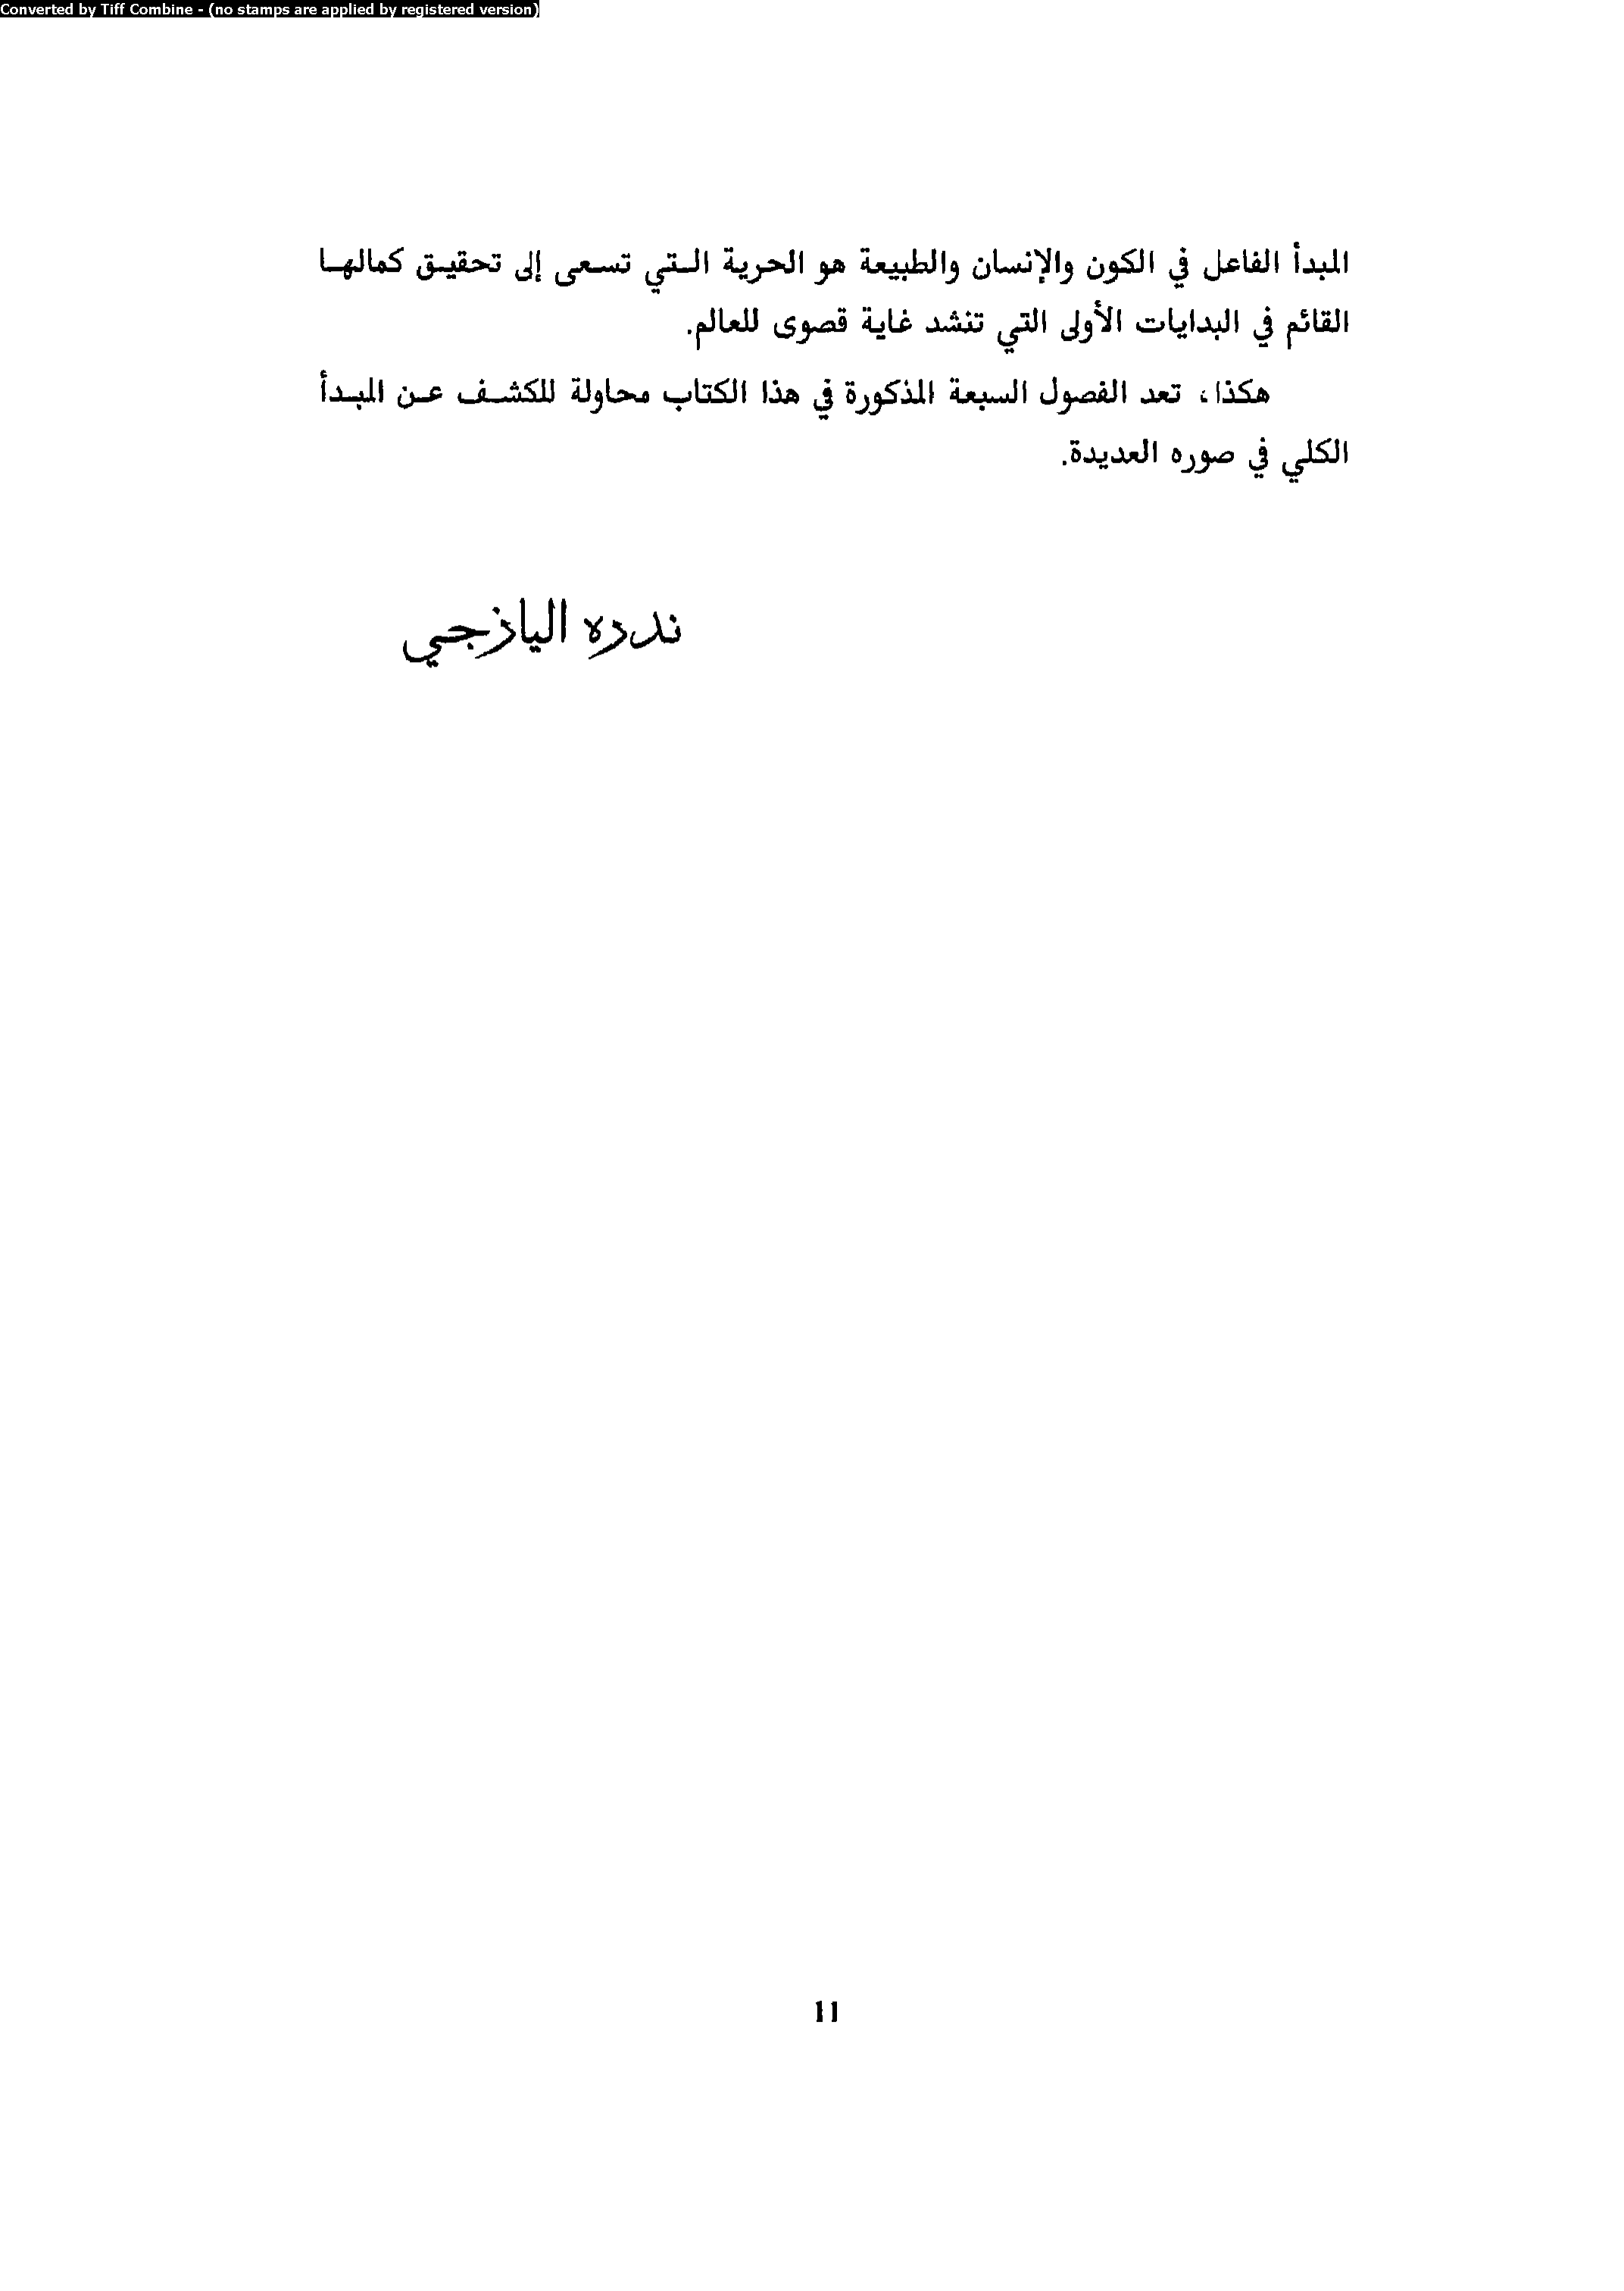 Converted by Tiff Combine - (no stamps are applied by registered version)
المبدأ الفاعل في الكون والإنسان والطبيعة هو الحرية التي تسعى إلى تحقيق كمالها
القائم في البدايات الأولى التي تنشد غاية قصوى للعالم.
هكذا، تعد الفصول السبعة المذكورة في هذا الكتاب محاولة للكشف عن المبدأ
الكلي في صوره العديدة.
ندره اليازجي
11